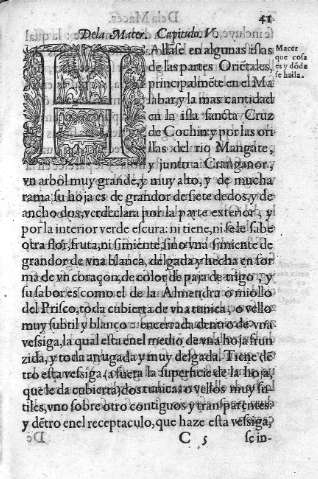 41
De la Macer. Capitulo. V.
Macer
que cosa
es y dõde
se halla.
HAllase en algunas islas
de las partes Oriẽtales,
principalmẽte en el Ma
labar, y la mas cantidad
en la isla sancta Cruz
de Cochin y por las ori
llas del rio Mangate,
y junto a Cranganor,
vn arbol muy grande, y muy alto, y de mucha
rama: su hoja es de grandor de siete dedos, y de
ancho dos, verde clara por la parte exterior, y
por la interior verde escura: ni tiene, ni se le sabe
otra flor, fruta, ni simiente, sino vna simiente de
grandor de vna blanca, delgada y hecha en for
ma de vn coraçon, de color de paja de trigo, y
su sabor es como el de la Almendra o miollo
del Prisco, toda cubierta de vna tunica, o vello
muy subtil y blanco encerrada dentro de vna
vessiga, la qual esta en el medio de vna hoja frun
zida, y toda arrugada y muy delgada. Tiene dẽ
tro esta vessiga (a fuera la superficie de la hoja,
que le da cubierta) dos tunicas o vellos muy su
tiles, vno sobre otro contiguos y tranparentes
y dẽtro en el receptaculo, que haze esta vessiga,
C 5
se in-